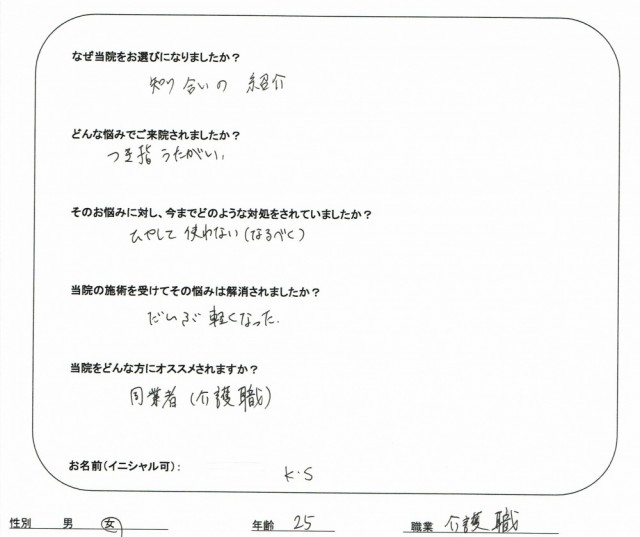 なぜ当院をお選びになりましたか？
知り合いの 紹介
どんな悩みでご来院されましたか？
つき指 うたがい、
そのお悩みに対し、今までどのような対処をされていましたか？
ひやして 使わない（なるべく）
当院の施術を受けてその悩みは解消されましたか？
だいぶ 軽くなった.
当院をどんな方にオススメされますか？
同業者（介護職）
お名前（イニシャル可）： K.S
性別 男 女 年齢 25 職業 介護職